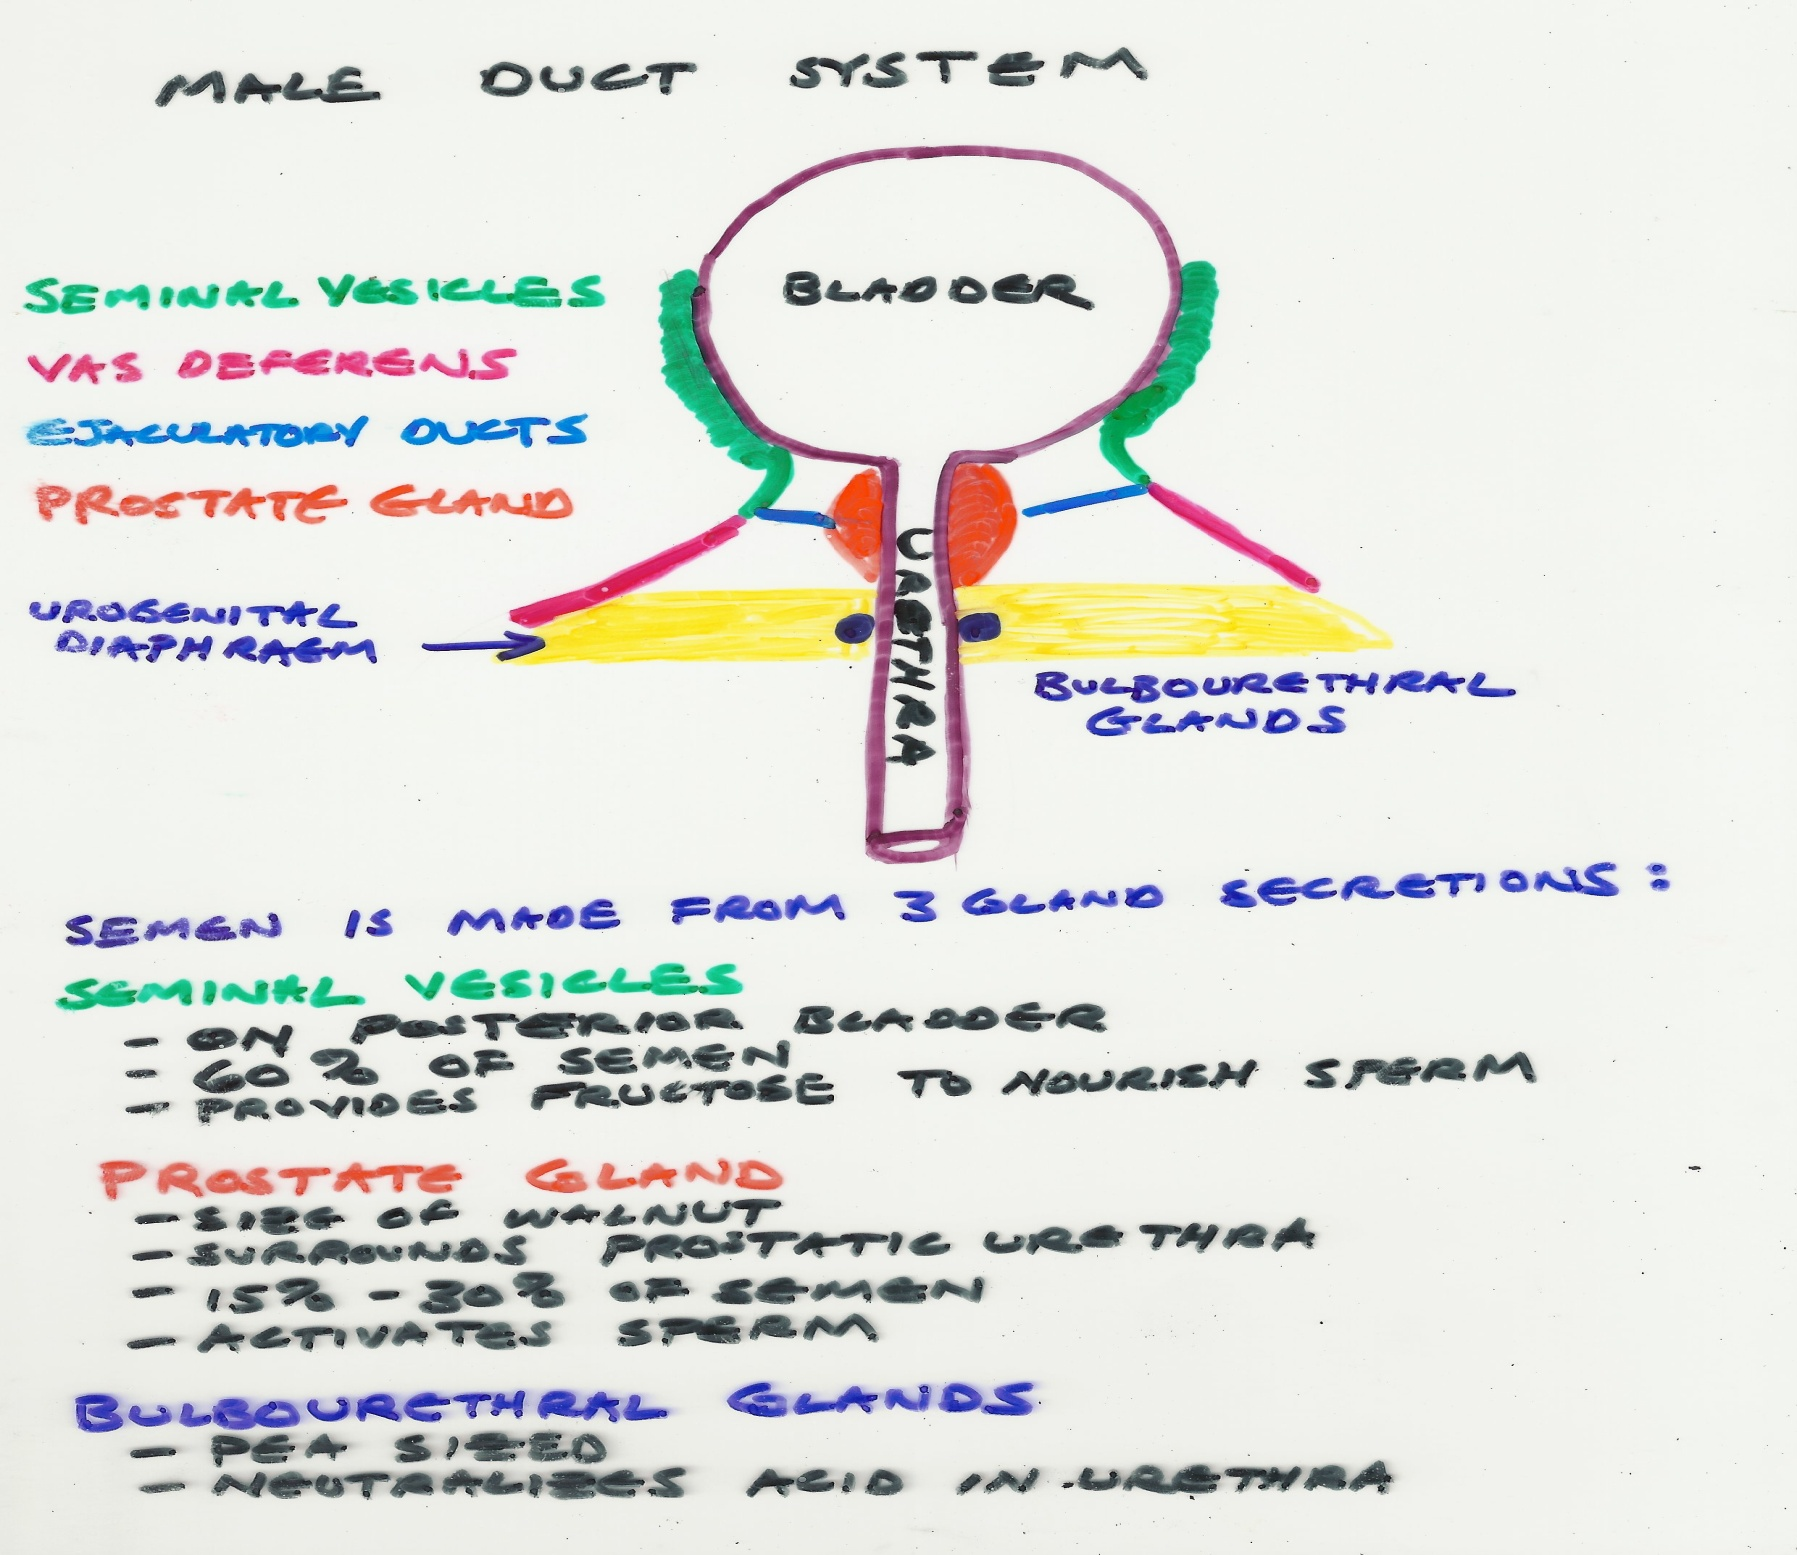 MALE DUCT SYSTEM
BLADDER
SEMINAL VESICLES
VAS DEFERENS
EJACULATORY DUCTS
PROSTATE GLAND
URETHRA
UROGENITAL
DIAPHRAGM
BULBOURETHRAL
GLANDS
SEMEN IS MADE FROM 3 GLAND SECRETIONS:
SEMINAL VESICLES
- ON POSTERIOR BLADDER
- 60% OF SEMEN
- PROVIDES FRUCTOSE TO NOURISH SPERM
PROSTATE GLAND
- SIZE OF WALNUT
- SURROUNDS PROSTATIC URETHRA
- 15% - 30% OF SEMEN
- ACTIVATES SPERM
BULBOURETHRAL GLANDS
- PEA SIZED
- NEUTRALIZES ACID IN URETHRA